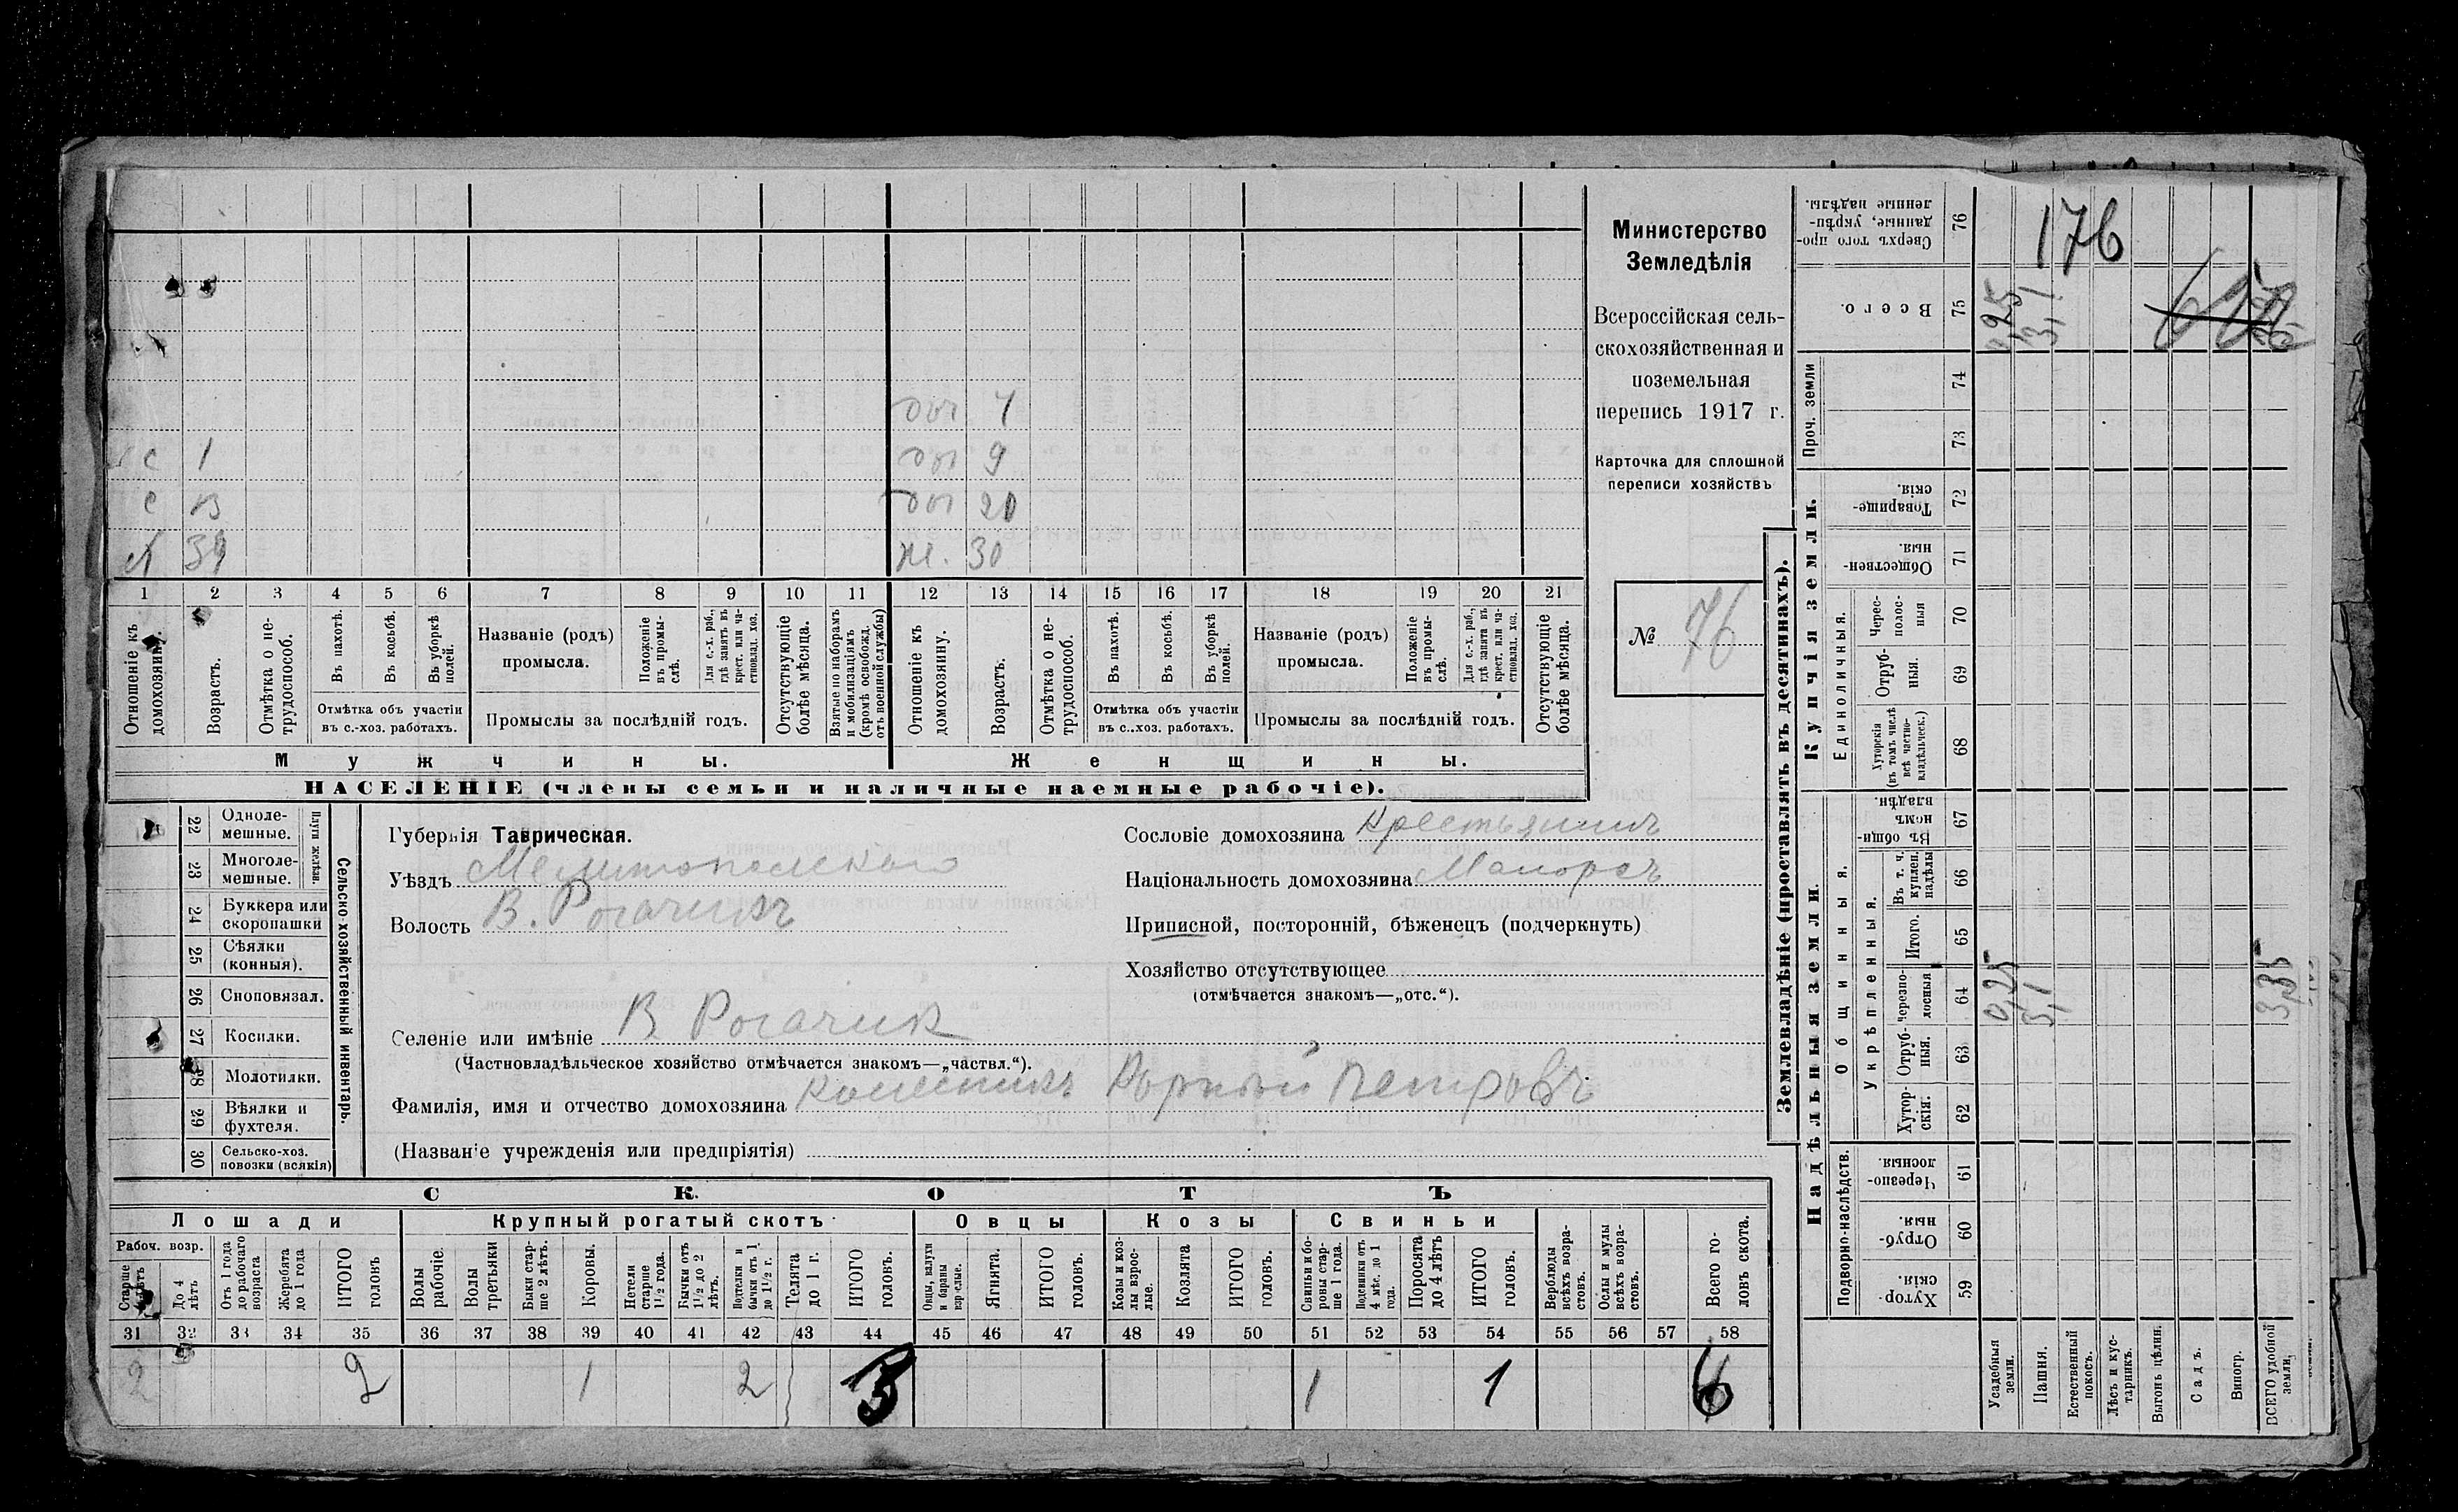 Министерство
Земледѣлія
Всероссійская сель-
скохозяйственная и
поземельная
перепись 1917 г.
Карточка для сплошной
переписи хозяйствъ
№ 76
доч 4
с 1 доч 9
с доч 20
39 ж. 30
1 2 3 4 5 6 7 8 9 10 11 12 13 14 15 16 17 18 19 20 21
Отношеніе къ домохозяину.
Возрастъ.
Отмѣтка о не-трудоспособ.
Въ пахотѣ.
Въ косьбѣ.
Въ уборкѣ полей.
Отмѣтка объ участіи
въ с.-хоз. работахъ.
Названіе (родъ)
промысла.
Положеніе въ промы-слѣ.
Для с.-х. раб., гдѣ занятъ въ крест. или ча-стновлад. хоз.
Промыслы за послѣдній годъ.
Отсутствующіе болѣе мѣсяца.
Взятые по наборамъ и мобилизаціямъ (кромѣ освобожд. отъ военной службы)
Отношеніе къ домохозяину.
Возрастъ.
Отмѣтка о не-трудоспособ.
Въ пахотѣ.
Въ косьбѣ.
Въ уборкѣ полей.
Отмѣтка объ участіи
въ с..хоз. работахъ.
Названіе (родъ)
промысла.
Положеніе въ промы-слѣ.
Для с.-х. раб., гдѣ занята въ крест. или ча-стновлад. хоз.
Промыслы за послѣдній годъ.
Отсутствующіе болѣе мѣсяца.
Мужчины. Женщины.
НАСЕЛЕНІЕ (члены семьи и наличные наемные рабочіе).
22 Одноле-мешные.
23 Многоле-мешные.
Плуги желѣзн.
24 Буккера или скоропашки
25 Сѣялки (конныя).
26 Сноповязал.
27 Косилки.
28 Молотилки.
29 Вѣялки и фухтеля.
30 Сельско-хоз. повозки (всякія)
Сельско-хозяйственный инвентарь.
Губернія Таврическая.
Уѣздъ Мелитопольскій
Волость В. Рогачикъ
Селеніе или имѣніе В Рогачик
(Частновладѣльческое хозяйство отмѣчается знакомъ—„частвл.“).
Фамилія, имя и отчество домохозяина Колесникъ Корній Петровъ
(Названіе учрежденія или предпріятія)
Сословіе домохозяина Крестьянинъ
Національность домохозяина Малорсъ
Приписной, посторонній, бѣженецъ (подчеркнуть)
Хозяйство отсутствующее
(отмѣчается знакомъ—„отс.“).
СКОТЪ
Лошади Крупный рогатый скотъ Овцы Козы Свиньи
Рабоч. возр.
Старше 4 лѣтъ
До 4 лѣтъ
Отъ 1 года до рабочаго возраста
Жеребята до 1 года
ИТОГО головъ
Волы рабочіе.
Волы третьяки
Быки стар-ше 2 лѣтъ.
Коровы.
Нетели старше 1½ года.
Бычки отъ 1½ до 2 лѣтъ.
Подтелки и бычки отъ 1 до 1½ г.
Телята до 1 г.
ИТОГО головъ.
Овцы, валухи и бараны взрослые.
Ягнята.
ИТОГО головъ.
Козы и коз-лы взрос-лые.
Козлята
ИТОГО головъ.
Свиньи и бо-ровы стар-ше 1 года.
Подсвинки отъ 4 мѣс. до 1 года.
Поросята до 4 лѣтъ
ИТОГО головъ.
Верблюды всѣхъ возра-стовъ.
Ослы и мулы всѣхъ возра-стовъ.
Всего го-ловъ скота.
31 32 33 34 35 36 37 38 39 40 41 42 43 44 45 46 47 48 49 50 51 52 53 54 55 56 57 58
2 2 1 2 3 1 1 6
Землевладѣніе (проставлять въ десятинахъ).
Надѣльныя земли. Купчія земли.
Проч. земли
Общинныя.
Укрѣпленныя.
Подворно-наслѣдств.
Единоличныя.
Сверхъ того про-данные, укрѣп-ленные надѣлы. 76
Всего. 75
74
73
Товарище-скія. 72
Обществен-ныя. 71
Черес-полос-ныя 70
Отруб-ныя. 69
Хуторскія (въ томъ числѣ всѣ частно-владѣльческ.) 68
Въ общи-номъ владѣн. 67
Въ т. ч. куплен. надѣлы 66
Итого. 65
Черезпо-лосныя 64
Отруб-ныя. 63
Хутор-скія. 62
Черезпо-лосныя 61
Отруб-ныя. 60
Хутор-скія. 59
Усадебныя земли.
Пашня.
Естественный покосъ.
Лѣсъ и кус-тарникъ.
Выгонъ цѣлин.
Садъ.
Виногр.
ВСЕГО удобной земли.
176
0,25
3,1
0,25
3,1
3,35